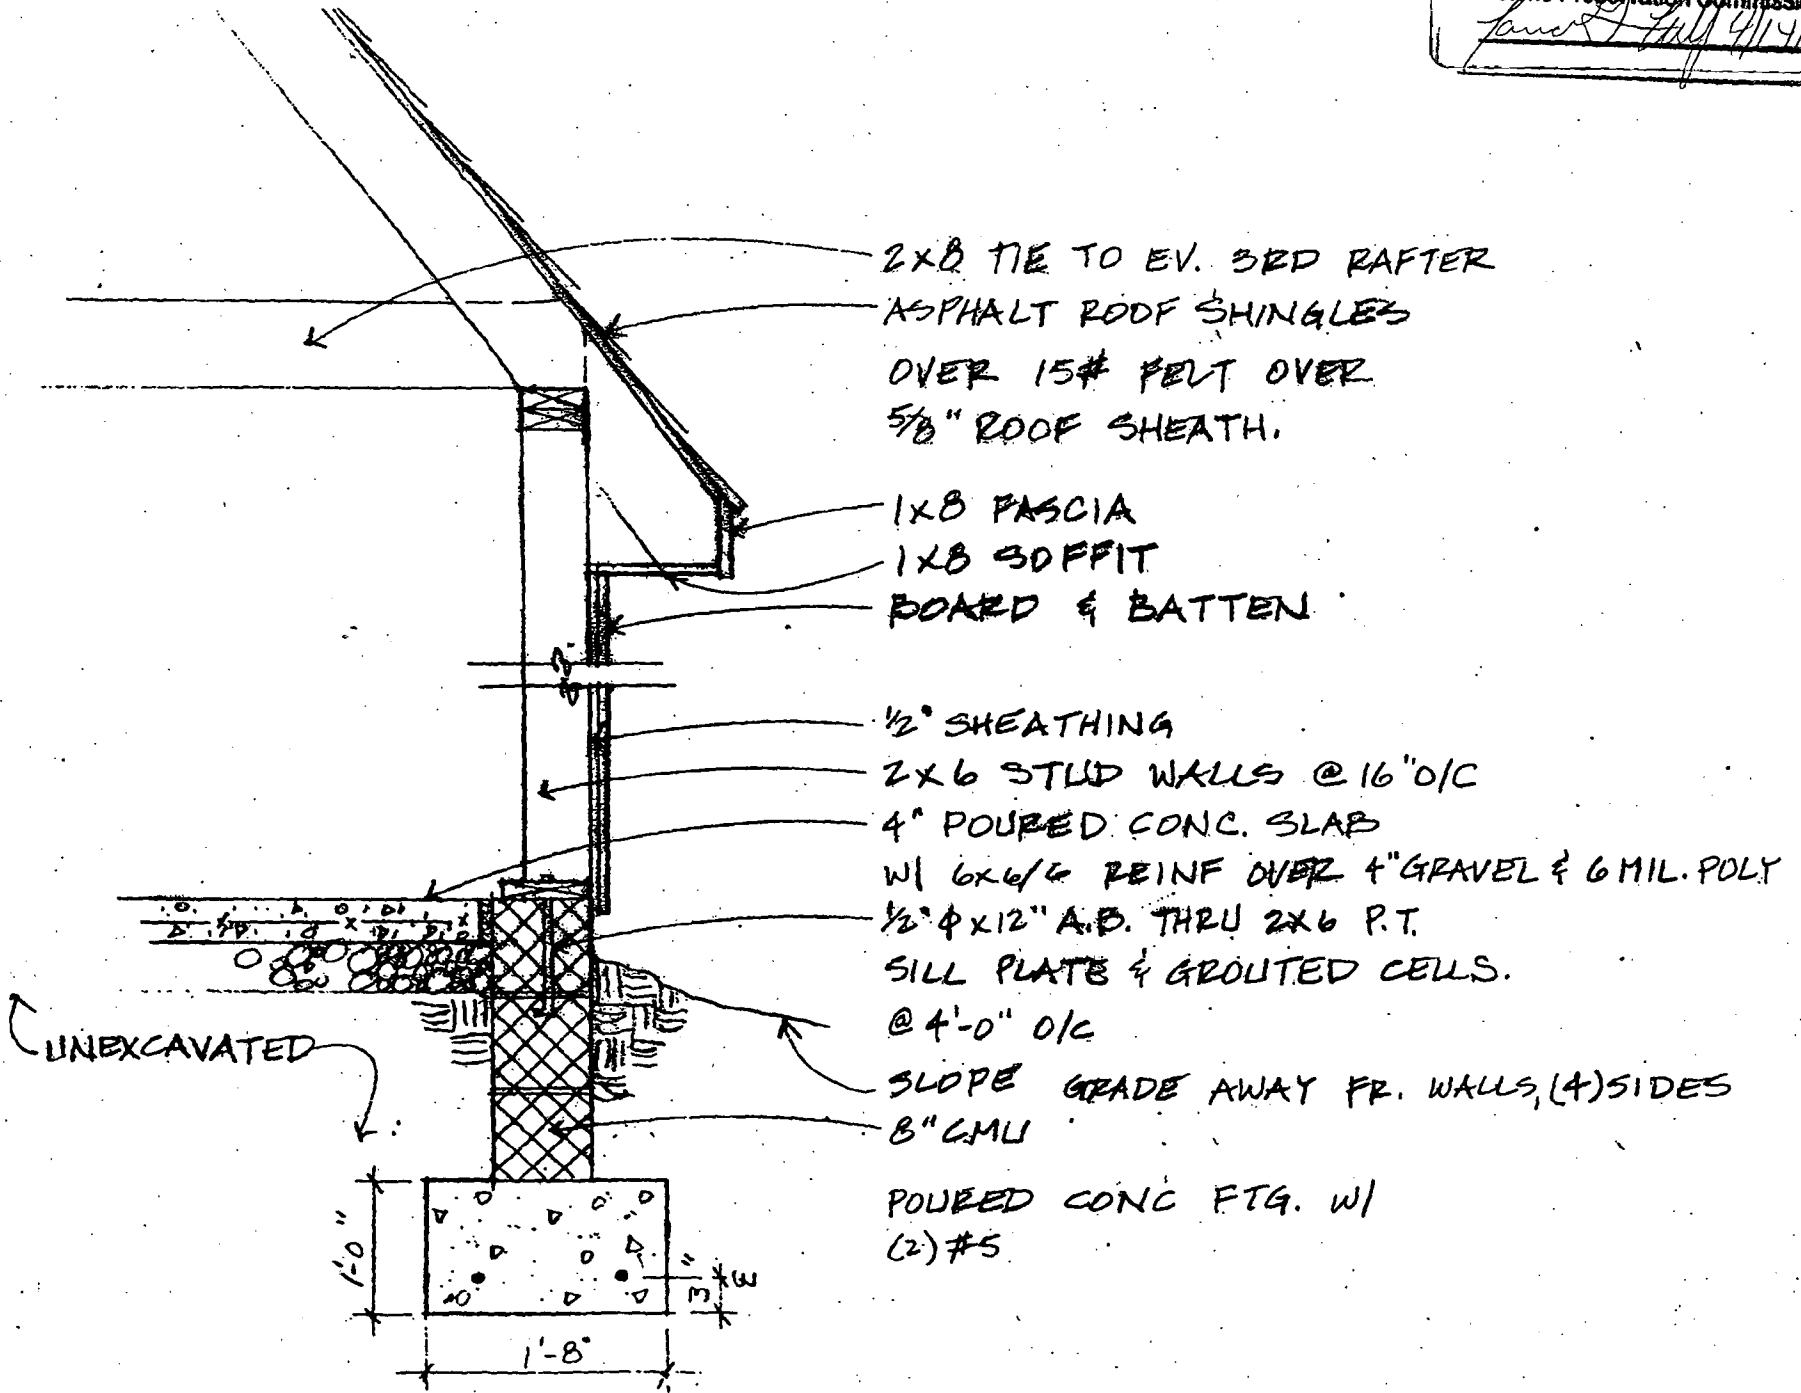 Preservation Commission
2X8 TIE TO EV. 3RD RAFTER
ASPHALT ROOF SHINGLES
OVER 15# FELT OVER
5/8" ROOF SHEATH.
1X8 FASCIA
1X8 SOFFIT
BOARD & BATTEN
1/2" SHEATHING
2X6 STUD WALLS @ 16" O/C
4" POURED CONC. SLAB
W/ 6x6/6 REINF OVER 4" GRAVEL & 6 MIL. POLY
1/2" φ x 12" A.B. THRU 2X6 P.T.
SILL PLATE & GROUTED CELLS.
@ 4'-0" O/C
UNEXCAVATED
SLOPE GRADE AWAY FR. WALLS, (4) SIDES
8" CMU
POURED CONC FTG. W/
(2) #5
1'-0"
3"
1'-8"